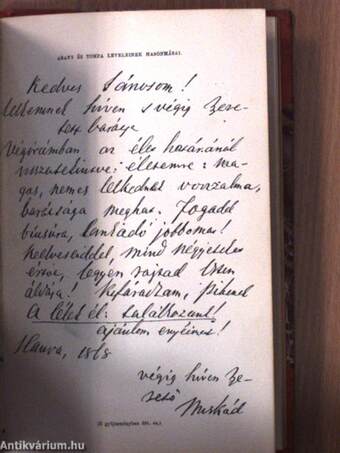 ARANY ÉS TOMPA LEVELEINEK HASONMÁSAI.
Kedves Jánosom!
Lelkemnek híven s végig szeretett barátja
Végórámban az élet határánál
visszatekintve életemre: ma-
gas, nemes lelkednek vonzalma,
barátsága meghat. Fogadd
búcsúra, lankadó jobbomat!
kedveseiddel, mind
legyen rajtad Isten
áldása! Kifáradtam, pihenek
A lélek él: találkozunk!
ajánlom enyéimet!
Hanva, 1868
végig híven sze-
rető
Miskád
Antikvárium.hu